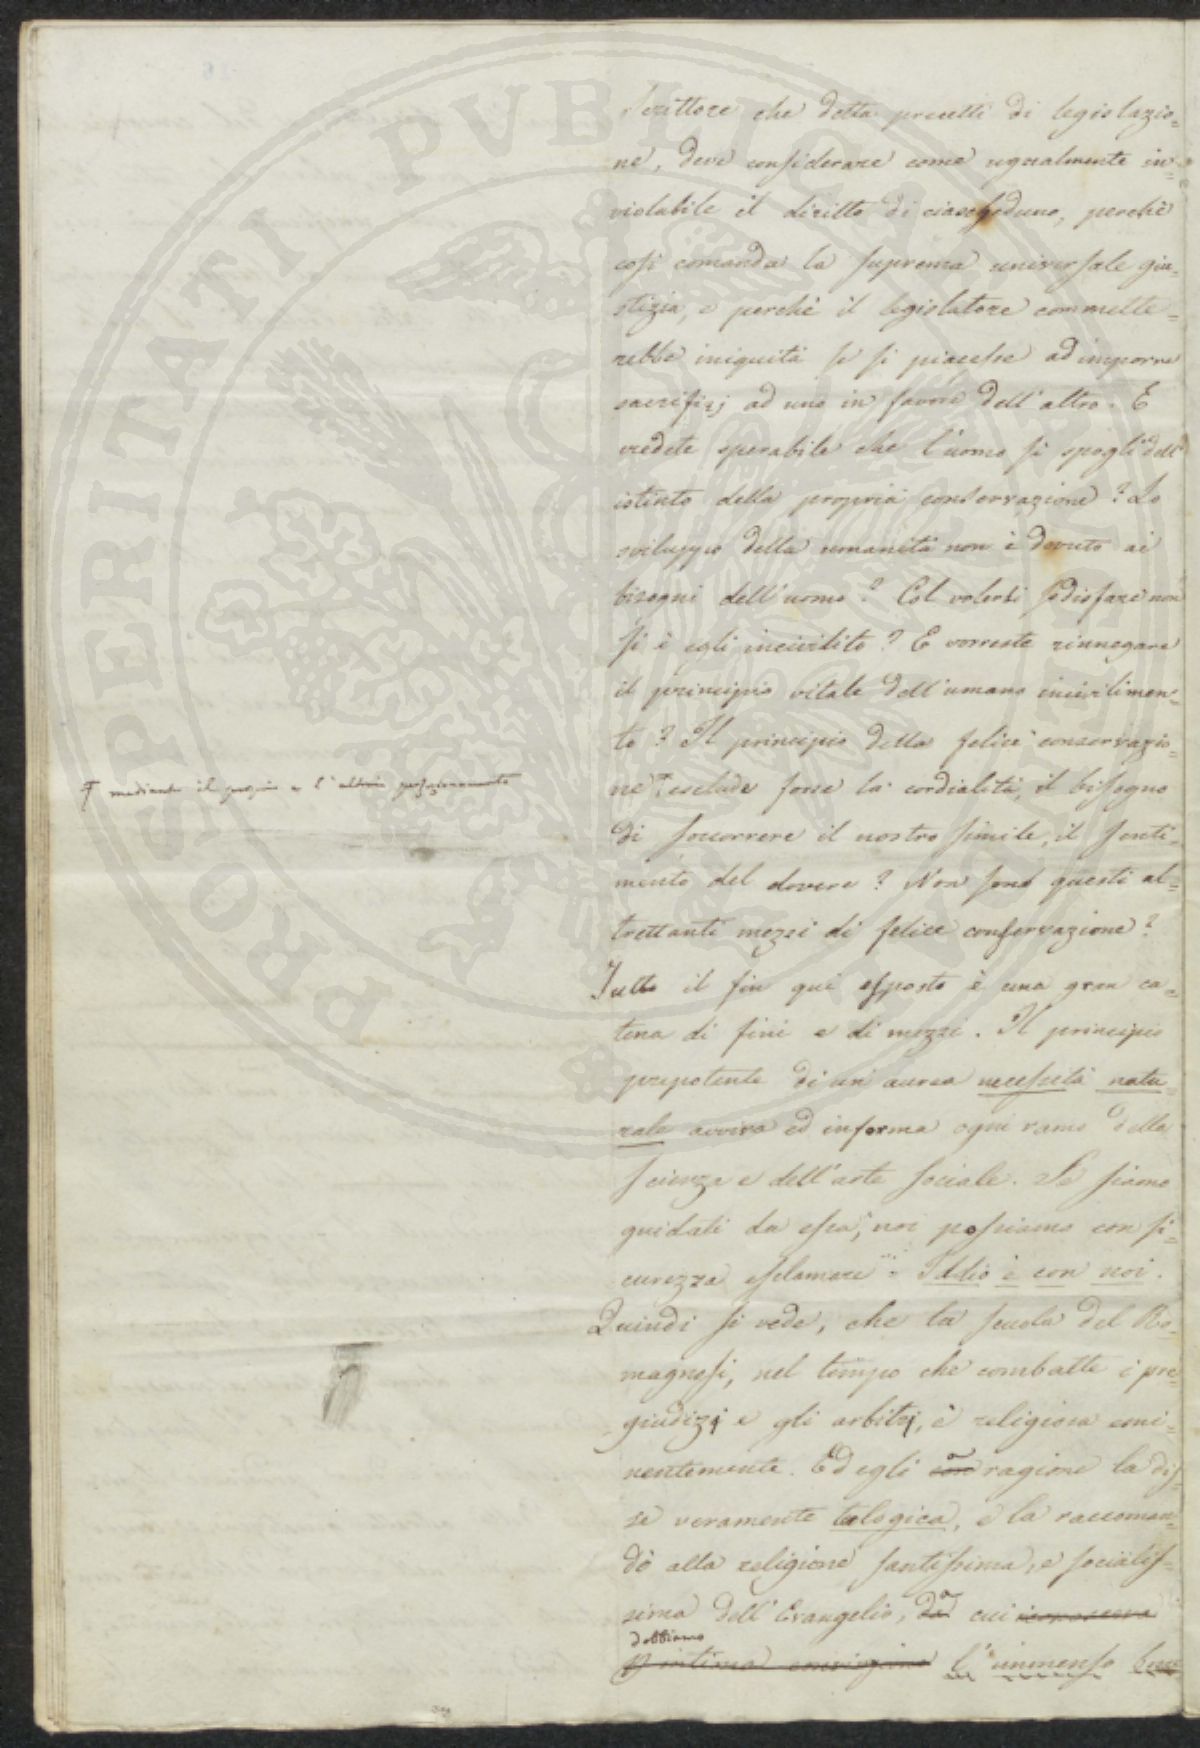 scrittore che detta precetti di legislazio=
ne, deve considerare come ugualmente in=
violabile il diritto di ciascheduno, perchè
così comanda la suprema universale giu=
stizia, e perchè il legislatore commette=
rebbe iniquità se si piacesse ad imporre
sacrifizj ad uno in favore dell'altro. E
credete sperabile che l'uomo si spogli dell'
istinto della propria conservazione? Lo
sviluppo della umanità non è dovuto ai
bisogni dell'uomo? Col volerli sodisfare non
si è egli incivilito? E vorreste rinnegare
il principio vitale dell'umano incivilimen=
to? Il principio della felice conservazio=
ne esclude forse la cordialità, il bisogno
di soccorrere il nostro simile, il senti=
mento del dovere? Non sono questi al=
trettanti mezzi di felice conservazione?
Tutto il fin qui esposto è una gran ca=
tena di fini e di mezzi. Il principio
prepotente di un'aurea necessità natu=
rale avviva ed informa ogni ramo della
scienza e dell'arte sociale. Se siamo
guidati da essa, noi possiamo con si=
curezza esclamare = Iddio è con noi.
Quindi si vede, che la scuola del Ro=
magnosi, nel tempo che combatte i pre=
giudizj e gli arbitrj, è religiosa emi=
nentemente. Ed egli a ragione la dis=
se veramente teologica, e la raccoman=
dò alla religione santissima, e socialis=
sima dell'Evangelio, a cui
dobbiamo
l'immenso bene
mediante il proprio e l'altrui perfezionamento
PROSPERITATI PVBLICAE